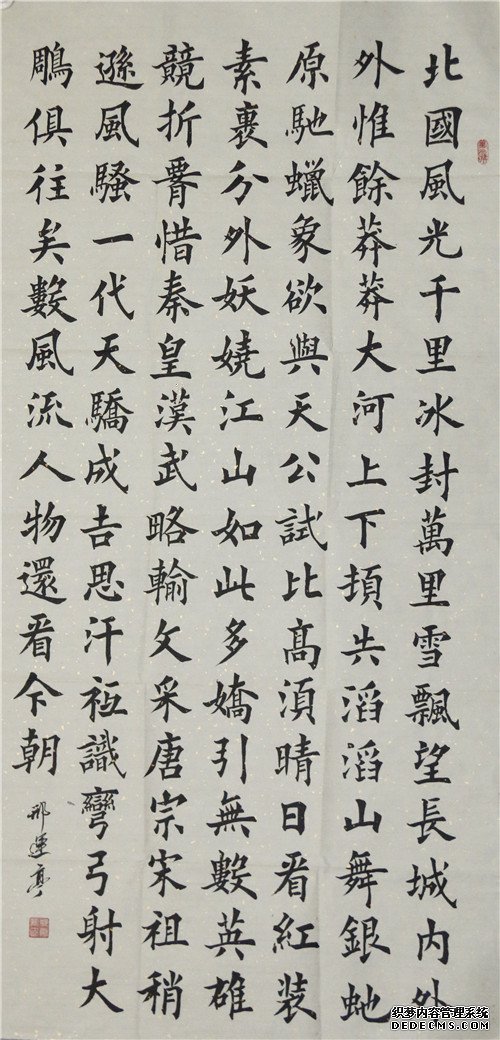 北國風光千里冰封萬里雪飄望長城内外
外惟餘莽莽大河上下頓失滔滔山舞銀虵
原馳蠟象欲與天公試比高須晴日看紅装
素裹分外妖嬈江山如此多嬌引無數英雄
競折惜秦皇漢武略輸文采唐宗宋祖稍
遜風騷一代天驕成吉思汗衹識彎弓射大
鵰俱往矣數風流人物還看今朝
邢運亭
织梦内容管理系统
DEDECMS.COM